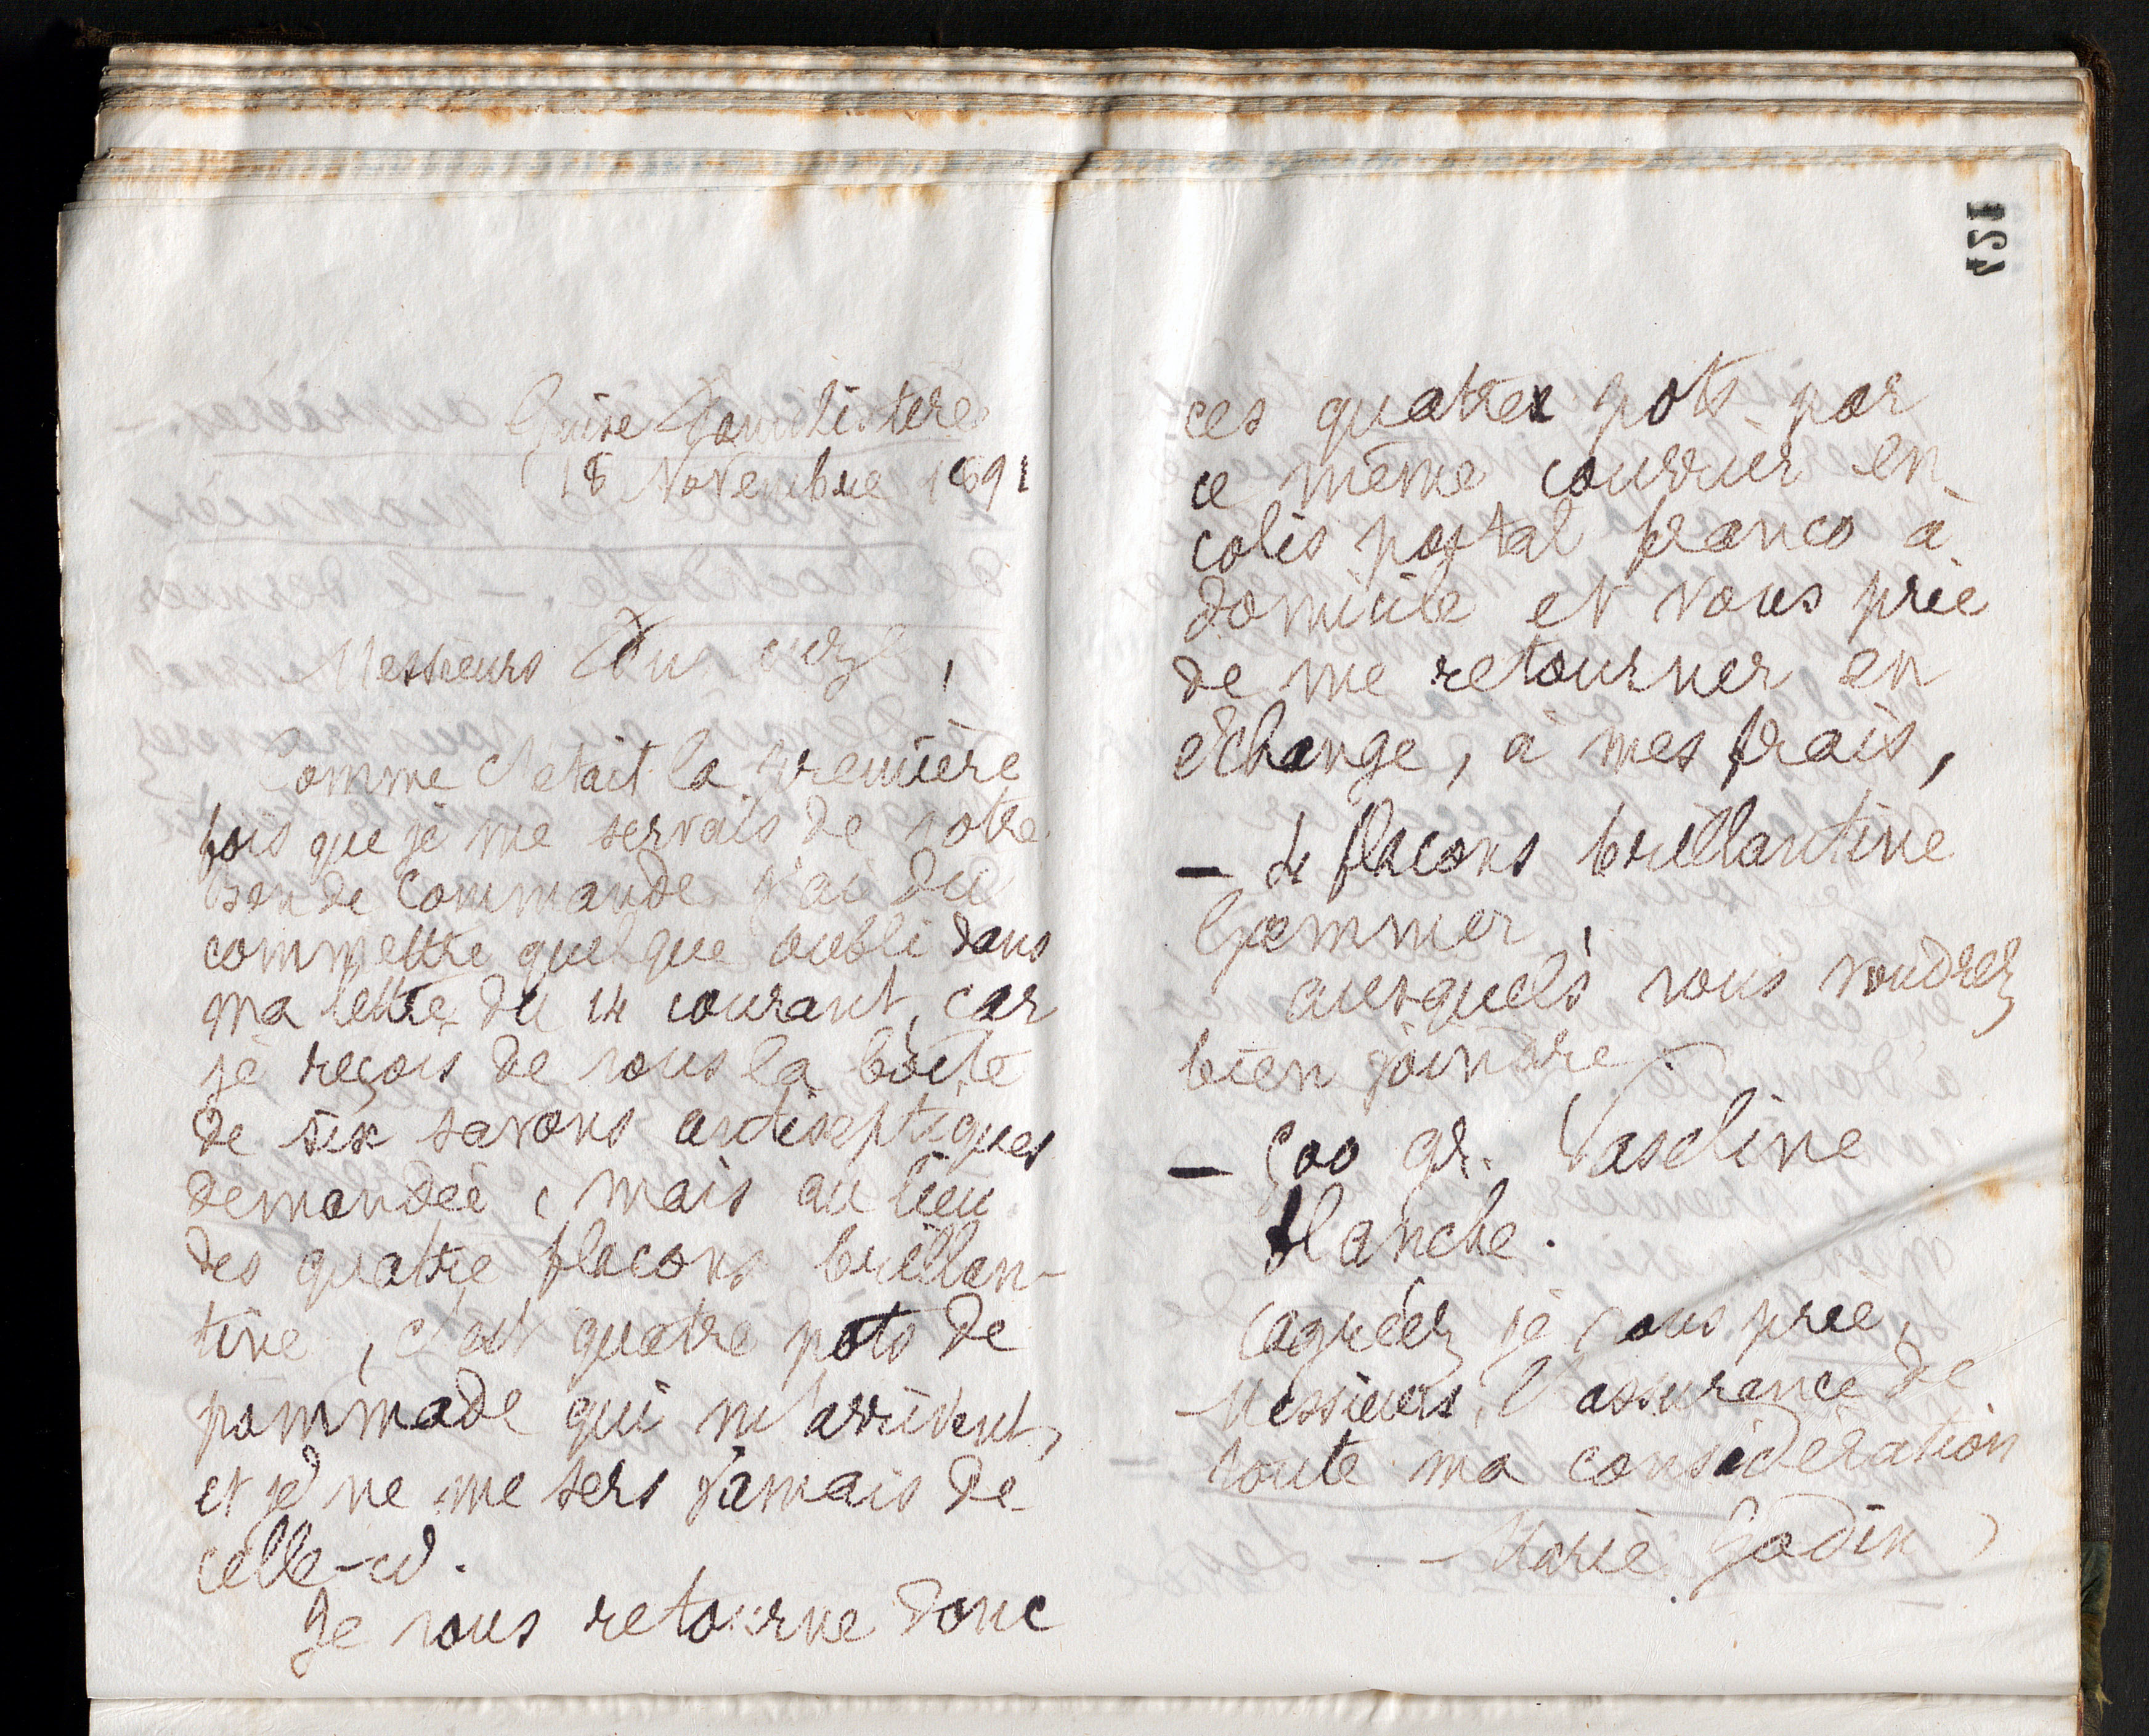 Guise Familistère
18 Novembre 1891
Messieurs
Comme c'était la première
fois que je me servais de votre
bon de commande j'ai du
commettre quelque oubli dans
ma lettre du 14 courant, car
je reçois de vous la boîte
de six savons antiseptiques
demandée, mais au lieu
des quatre flacons brillan-
tine, c'est quatre pots de
pommade qui m'arrivent,
et je ne me sers jamais de
celle-ci.
Je vous retourne donc
ces quatre pots par
ce même courrier en
colis postal franco à
domicile et vous prie
de me retourner en
échange, à mes frais,
— 4 flacons brillantine
auxquels vous voudrez
bien joindre.
— 500 gr. Vaseline
blanche.
Agréez je vous prie,
Messieurs, l'assurance de
toute ma considération
Marie Godin
421